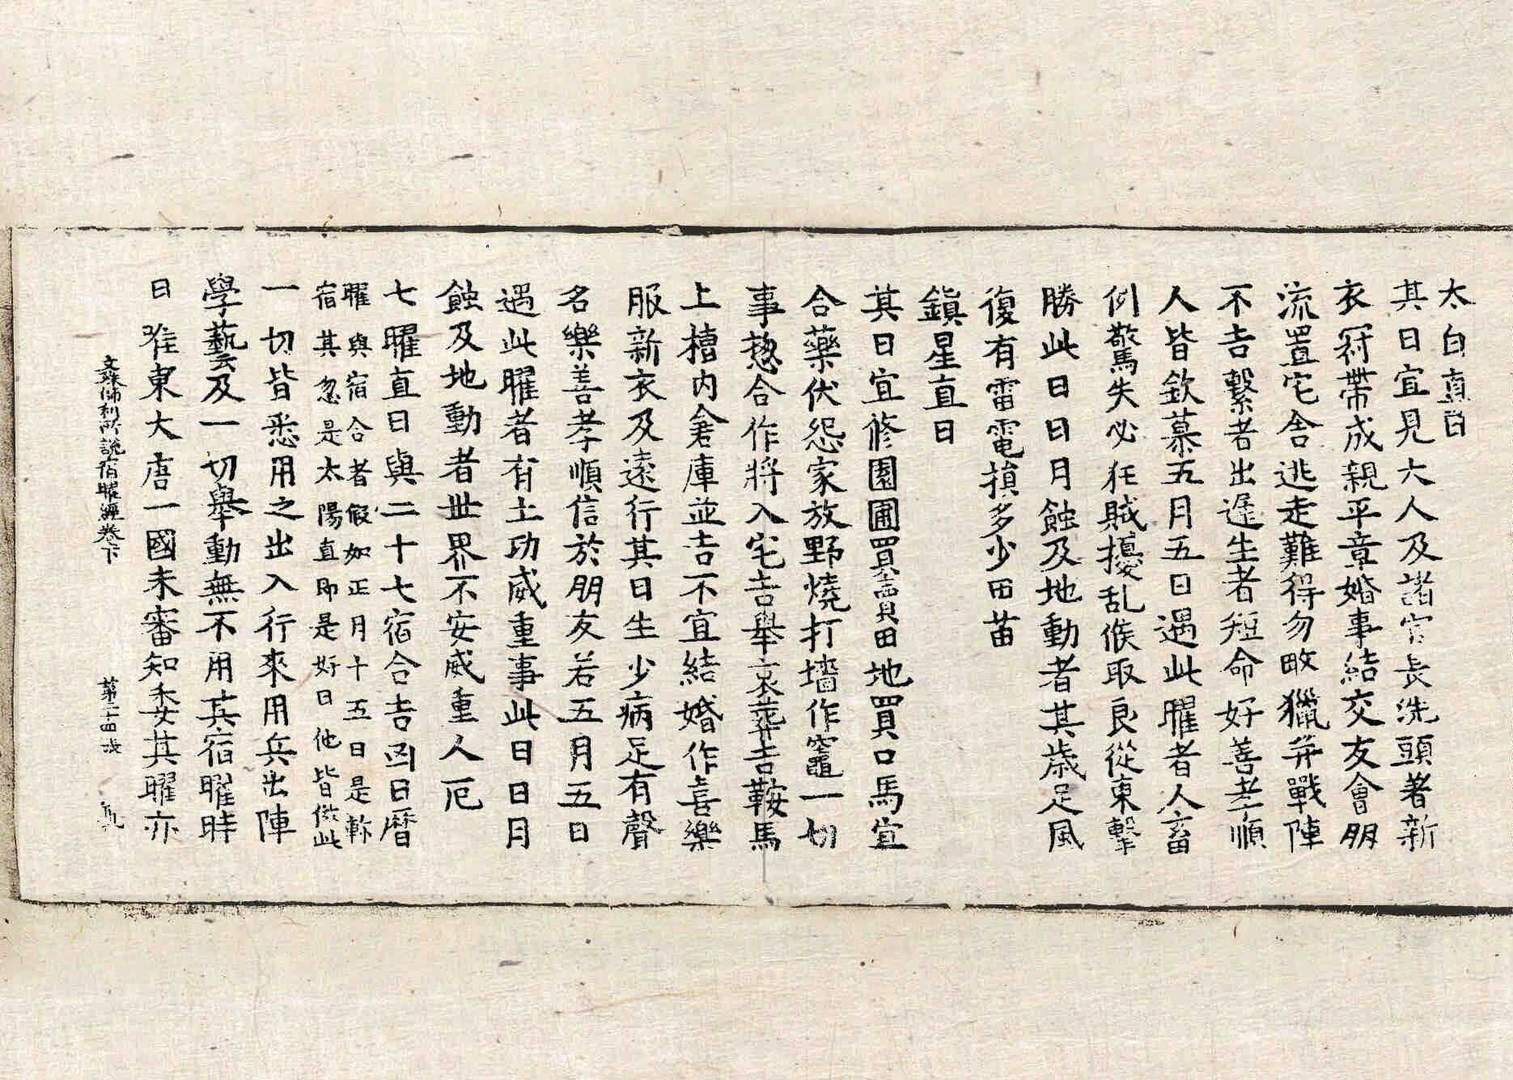 太白直日
其日宜見大人及諸官長洗頭著新
衣冠帶成親平章婚事結交友會朋
流置宅舍逃走難得勿畋獵并戰陣
不吉繫者出遲生者短命好善孝順
人皆欽慕五月五日遇此曜者人畜
例驚失必狂賊擾乱候取良從東擊
勝此日日月蝕及地動者其歲足風
復有雷電損多少田苗
鎮星直日
其日宜修園圃買賣田地買口馬宜
合藥伏怨家放野燒打墻作竈一切
事惣合作將入宅吉舉哀葬吉鞍馬
上槽內倉庫並吉不宜結婚作喜樂
服新衣及遠行其日生少病足有聲
名樂善孝順信於朋友若五月五日
遇此曜者有土功威重事此日日月
蝕及地動者世界不安威重人厄
七曜直日與二十七宿合吉凶日曆
曜與宿合者假如正月十五日是軫
宿其忽是太陽直即是好日他皆倣此
一切皆悉用之出入行來用兵出陣
學藝及一切舉動無不用其宿曜時
日唯東大唐一國未審知委其曜亦
文殊師利所說宿曜經卷下 第二十四張